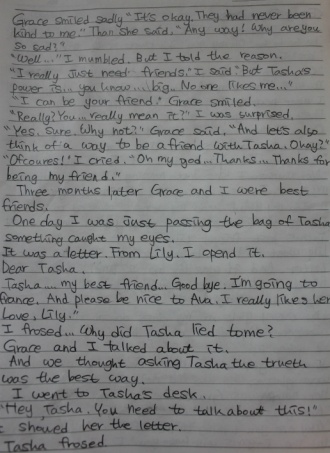 Grace smiled sadly "It's okay. They had never been
kind to me." Than she said. "Any way! Why are you
so sad?"
"Well..." I mumbled. But I told the reason.
"I really just need friends." I said. "But Tasha's
power is... you know... big.. No one likes me..."
"I can be your friend." Grace smiled.
"Really? You... really mean it?" I was surprised.
"Yes. Sure. Why not?" Grace said, "And let's also
think of a way to be a friend with Tasha. Okay?"
"Ofcoures!" I cried. "Oh my god... Thanks... Thanks for
being my friend."
Three months later Grace and I were best
friends.
One day I was just passing the bag of Tasha
something caught my eyes.
It was a letter. From Lily. I opend it.
Dear Tasha.
Tasha.... my best friend... Good bye. I'm going to
france. And please be nice to Ava. I really likes her
Love, Lily."
I frosed... Why did Tasha lied to me?
Grace and I talked about it.
And we thought asking Tasha the trueth
was the best way.
I went to Tasha's desk.
"Hey, Tasha. You need to talk about this!"
I showed her the letter.
Tasha frosed